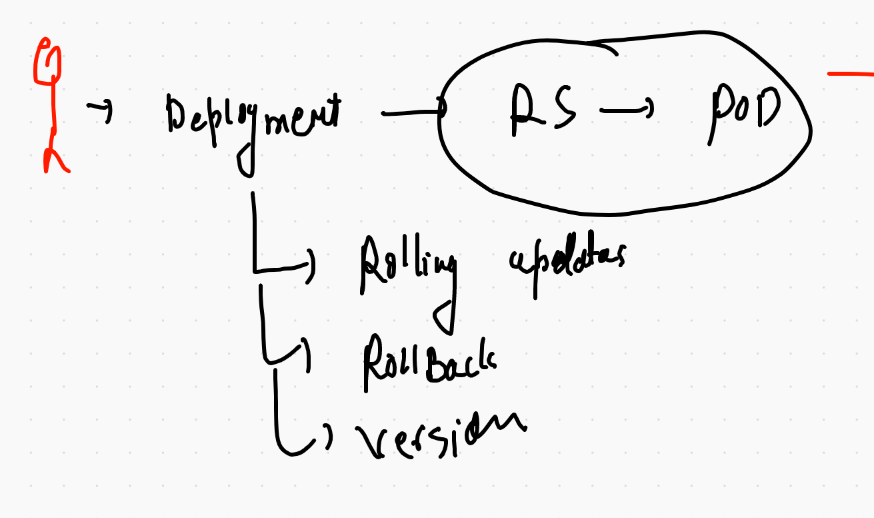 Deployment → RS → POD
Rolling updates
RollBack
version